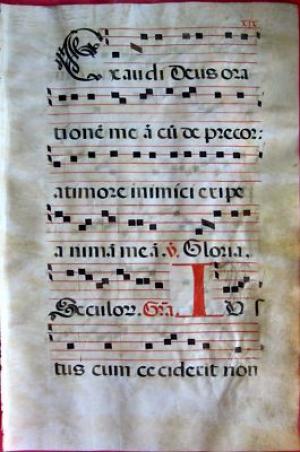 XIX
Exaudi Deus ora
tionē me ā cū de precor:
a timore inimici eripe
a nimā me ā. ℣. Gloria.
Seculor. Gra. I U s
tus cum ceciderit non